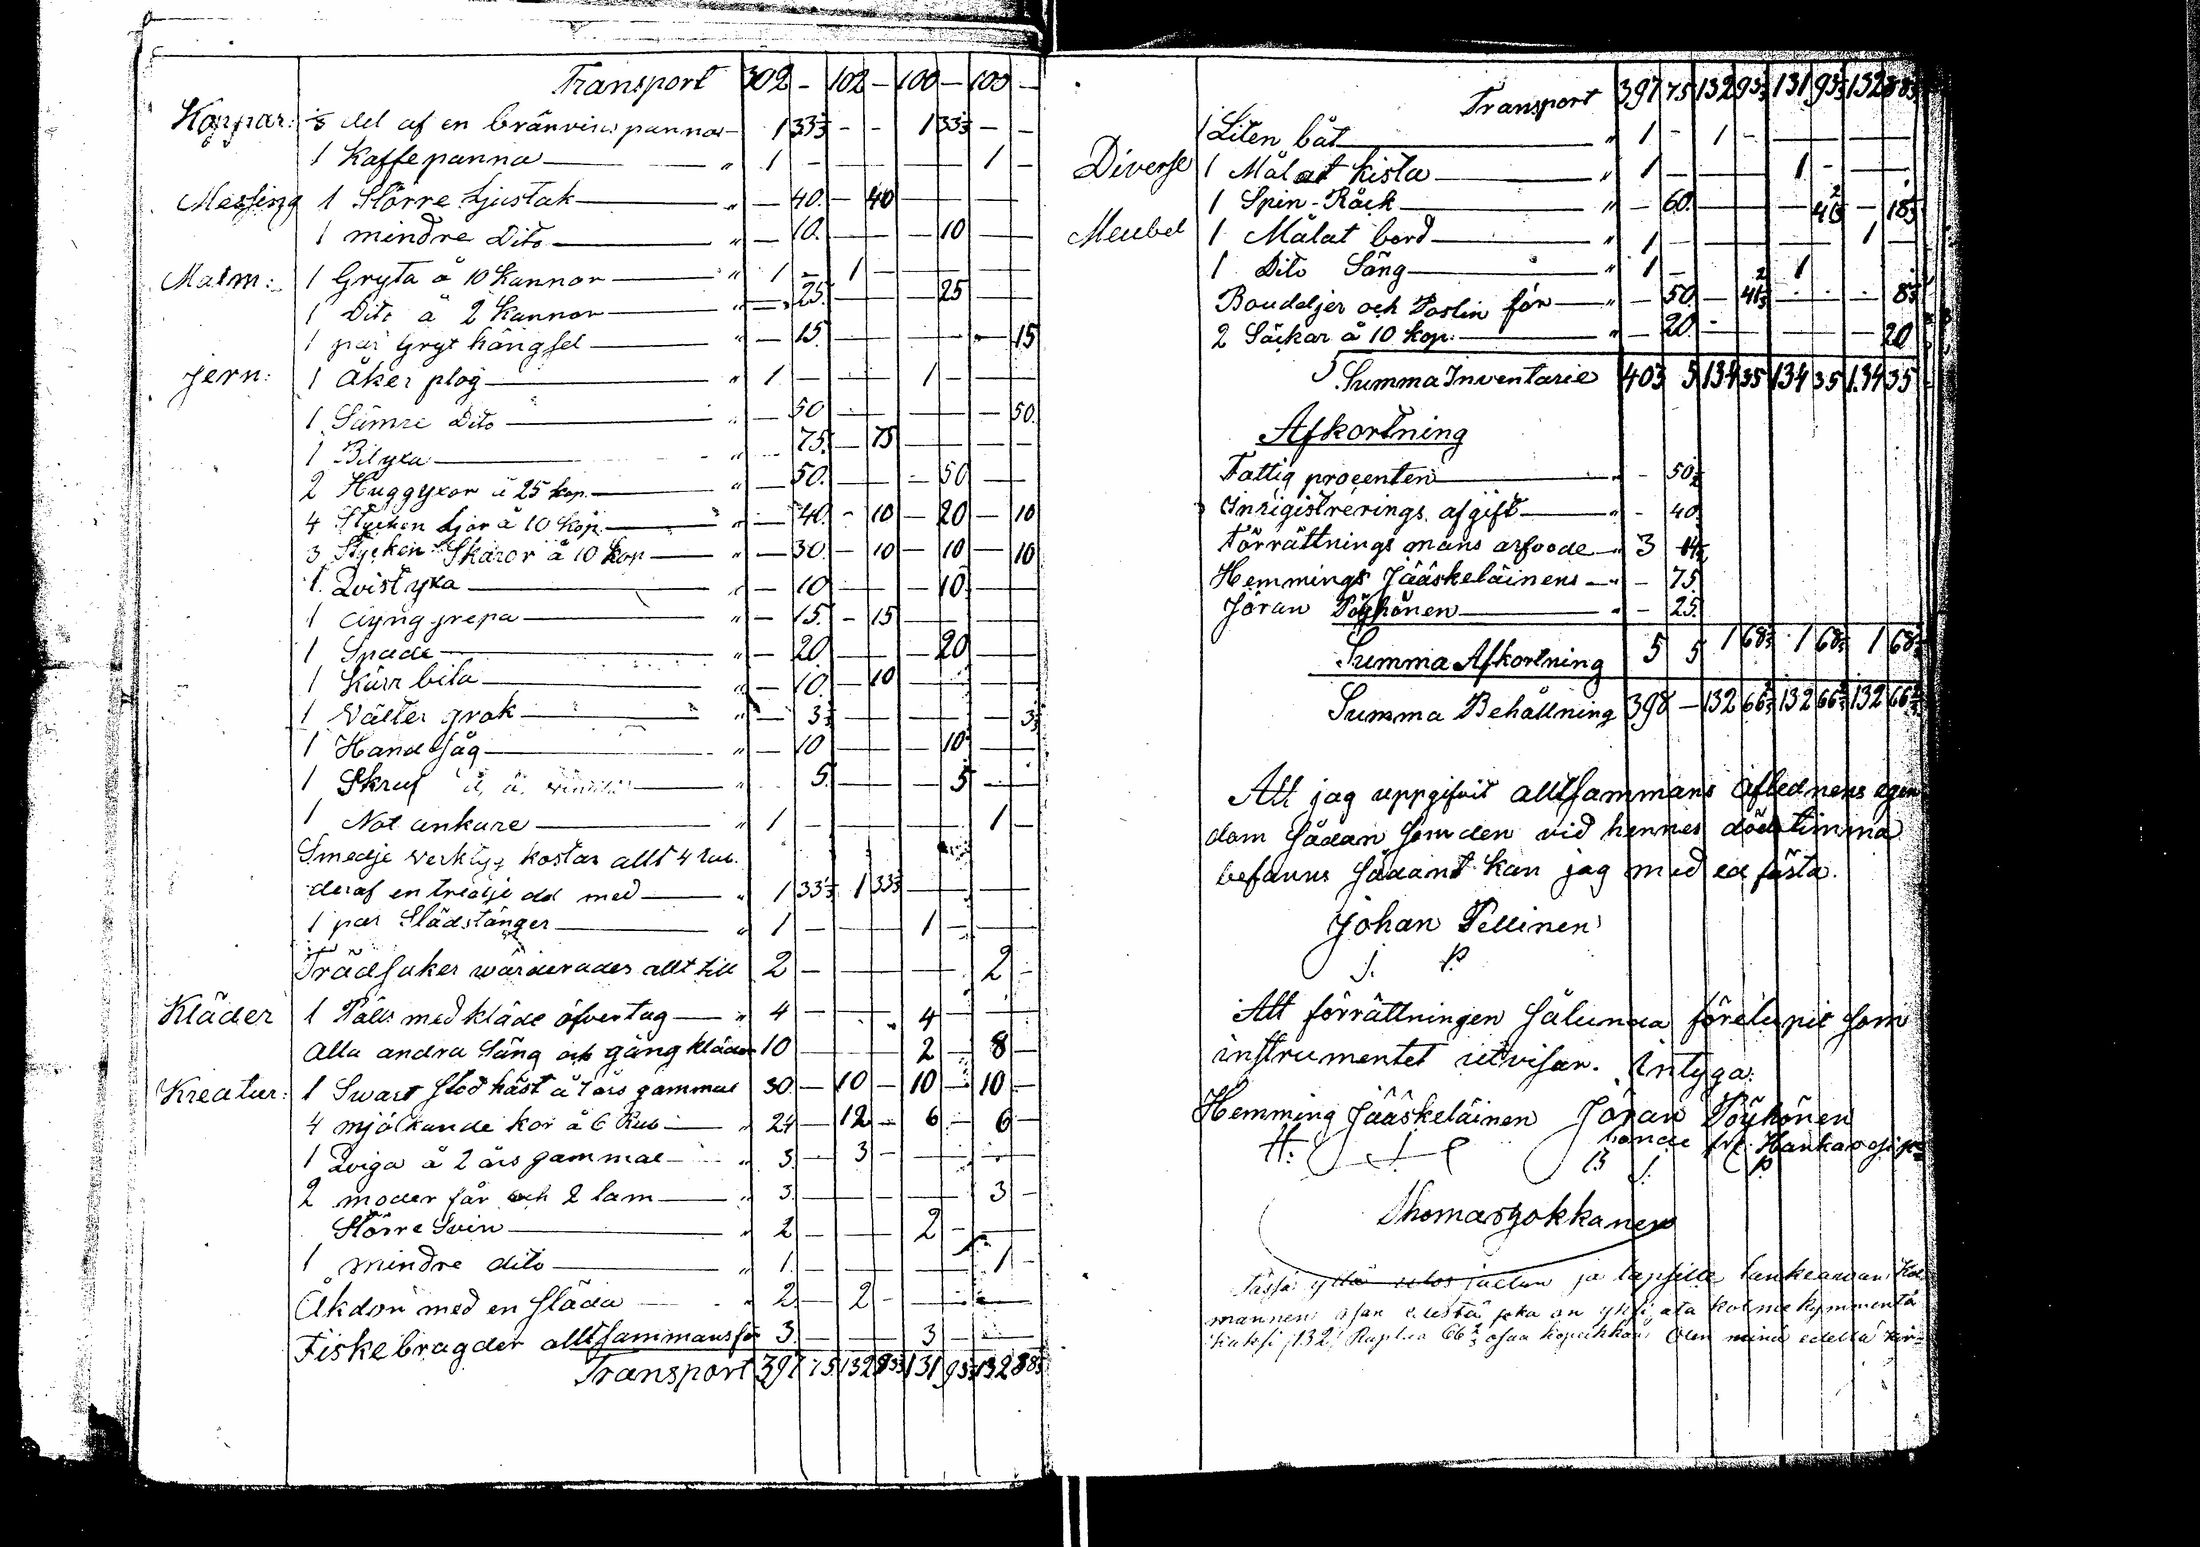 Transport 302 - 102 - 100 - 100 -
Koppar: ⅓ del af en bränvins panna - 1 33⅓ - - 1 33⅓ - -
1 Kaffepanna " 1 - 1 -
Messing 1 Större Ljustak " - 40. - 40
1 mindre Dito " - 10. - 10
Malm: 1 Gryta å 10 Kannor " 1 - 1 -
1 Dito å 2 Kannor " - 25. 25
1 par Gryt hängsel - 15. - 15
jern: 1 Åker plog " 1 - 1 -
1 Sämre Dito - 50 - 50.
1 Bilyxa " - 75. - 75
2 Huggyxor å 25 kop. " - 50. - 50
4 Stycken Ljor å 10 kop. " - 40. - 10 - 20 - 10
3 Stycken Skäror å 10 kop " - 30. - 10 - 10 - 10
1 Qvistyxa " - 10 - 10
1 Dyng grepa " - 15. - 15
1 Spade " - 20 - 20
1 Kärr bila " - 10. - 10
1 grok " - 3⅓ - 3⅓
1 Hand såg " - 10 - 10
1 Skruf 5. - 5
1 Not ankare " 1 - 1 -
Smedje verktyg kostar allt 4 Rub.
deraf en tredje del med " 1 33⅓ 1 33⅓
1 par Slädstänger " 1 - 1 -
Trädsaker wärderades allt till 2 - 2 -
Kläder 1 Päls med kläde öfvertag " 4 - 4 -
Alla andra Säng och gång kläder 10 2 - 8 -
Kreatur: 1 Swart Stod häst å 7 års gammal 30. - 10 - 10 - 10 -
4 mjölkande kor å 6 Rub " 24 - 12 - 6 - 6 -
1 Qviga å 2 års gammal " 3 - 3 -
2 moder får och 2 lam " 3. - 3 -
Större Svin " 2 - 2 -
1 mindre dito " 1. - 1 -
Åkdon med en släda " 2 - 2 -
Fiskebragder alltsammans för 3. - 3 -
Transport 397 75 132 93⅓ 131 93⅓ 132 88⅓
Transport 397 75 132 93⅓ 131 93⅓ 132 88⅓
1 Liten båt " 1 - 1 -
Diverse 1 Målat kista " 1 - 1 -
1 Spin-Råck " - 60. 41⅔ - 18⅓
Meubel 1 Målat bord " 1 - 1 -
1 Dito Säng " 1 - 1
Bouteljer och Poslin för " - 50. - 41⅔ - 8⅓
2 Säckar å 10 kop. " - 20. - 20
Summa Inventarie 403 5 134 35 134 35 134 35
Afkortning
Fattig procenten " - 50½
Inrigistrerings afgift " - 40.
Förrättnings mans arfvode " 3 14½
Hemmings Jääskeläinens " - 75.
Jöran Pöyhönen " - 25.
Summa Afkortning 5 5 1 68⅓ 1 68⅓ 1 68⅓
Summa Behållning 398 - 132 66⅔ 132 66⅔ 132 66⅔
Att jag uppgifvit alltsammans Aflednens egen
dom sådan som den vid hennes döds timma
befanns sådant kan jag med ed fästa.
Johan Pellinen
J. P
Att förrättningen sålunda förelupit som
instrumentet utvisar. Intyga:
Hemming Jääskeläinen Jöran Pöyhönen
H. J bonde frå Hankavesi
B J. P
Thomas Jokkanen
Tässä yllä ja lapsille lankeavan Kol
mannen osan edestä joka on yksi sata kolme kymmentä
kaksi /132/ Ruplaa 66⅔ osaa kopeikkaa, Olen minä edellä kir=